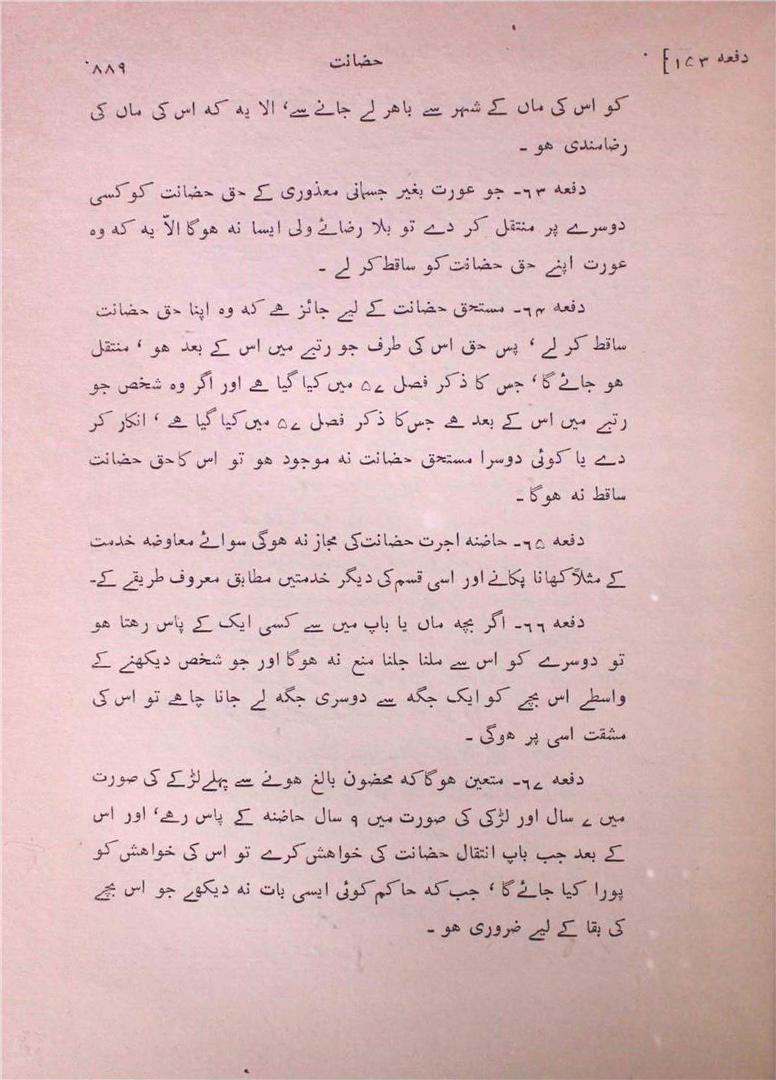 دفعہ ۱۵۳] حضانت ۸۸۹
کو اس کی ماں کے شہر سے باہر لے جانے سے، الا یہ کہ اس کی ماں کی
رضامندی ہو ۔
دفعہ ۶۳۔ جو عورت بغیر جسمانی معذوری کے حق حضانت کو کسی
دوسرے پر منتقل کر دے تو بلا رضائے ولی ایسا نہ ہوگا الاّ یہ کہ وہ
عورت اپنے حق حضانت کو ساقط کر لے ۔
دفعہ ۶۴۔ مستحق حضانت کے لیے جائز ہے کہ وہ اپنا حق حضانت
ساقط کر لے ، پس حق اس کی طرف جو رتبے میں اس کے بعد ہو ، منتقل
ہو جائے گا، جس کا ذکر فصل ۵۷ میں کیا گیا ہے اور اگر وہ شخص جو
رتبے میں اس کے بعد ہے جس کا ذکر فصل ۵۷ میں کیا گیا ہے ، انکار کر
دے یا کوئی دوسرا مستحق حضانت نہ موجود ہو تو اس کا حق حضانت
ساقط نہ ہوگا ۔
دفعہ ۶۵۔ حاضنہ اجرت حضانت کی مجاز نہ ہوگی سوائے معاوضہ خدمت
کے مثلاً کھانا پکانے اور اسی قسم کی دیگر خدمتیں مطابق معروف طریقے کے۔
دفعہ ۶۶۔ اگر بچہ ماں یا باپ میں سے کسی ایک کے پاس رہتا ہو
تو دوسرے کو اس سے ملنا جلنا منع نہ ہوگا اور جو شخص دیکھنے کے
واسطے اس بچے کو ایک جگہ سے دوسری جگہ لے جانا چاہے تو اس کی
مشقت اسی پر ہوگی ۔
دفعہ ۶۷۔ متعین ہوگا کہ محضون بالغ ہونے سے پہلے لڑکے کی صورت
میں ۷ سال اور لڑکی کی صورت میں ۹ سال حاضنہ کے پاس رہے، اور اس
کے بعد جب باپ انتقال حضانت کی خواہش کرے تو اس کی خواہش کو
پورا کیا جائے گا ، جب کہ حاکم کوئی ایسی بات نہ دیکھے جو اس بچے
کی بقا کے لیے ضروری ہو ۔